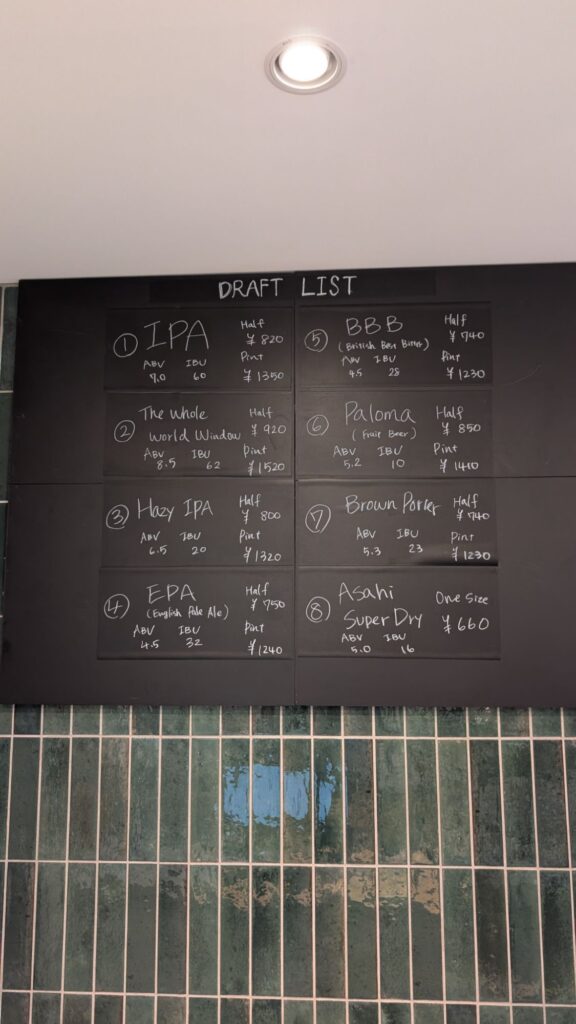 DRAFT LIST
① IPA
ABV IBU
7.0 60
Half
¥ 820
Pint
¥ 1350
② The Whole
World Window
ABV IBU
8.5 62
Half
¥ 920
Pint
¥ 1520
③ Hazy IPA
ABV IBU
6.5 20
Half
¥ 800
Pint
¥ 1320
④ EPA
(English Pale Ale)
ABV IBU
4.5 32
Half
¥ 750
Pint
¥ 1240
⑤ BBB
(British Best Bitter)
ABV IBU
4.5 28
Half
¥ 740
Pint
¥ 1230
⑥ Paloma
(Fruit Beer)
ABV IBU
5.2 10
Half
¥ 850
Pint
¥ 1410
⑦ Brown Porter
ABV IBU
5.3 23
Half
¥ 740
Pint
¥ 1230
⑧ Asahi
Super Dry
ABV IBU
5.0 16
One Size
¥ 660